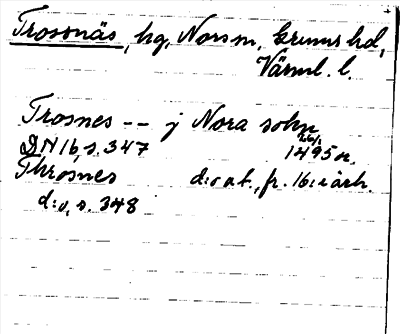 Trossnäs, hg, Nors sn, Grums hd,
Värml. l.
Trosnes -- j Nora sokn
DN 16, s. 347 1495 n.
Throsnes d:o o. t., fr. 16:e årh.
d:o, s. 348